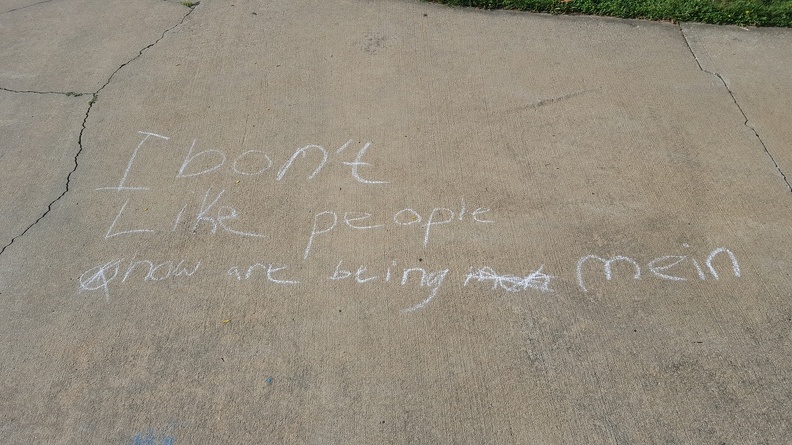 I bon't
Like people
how are being mein